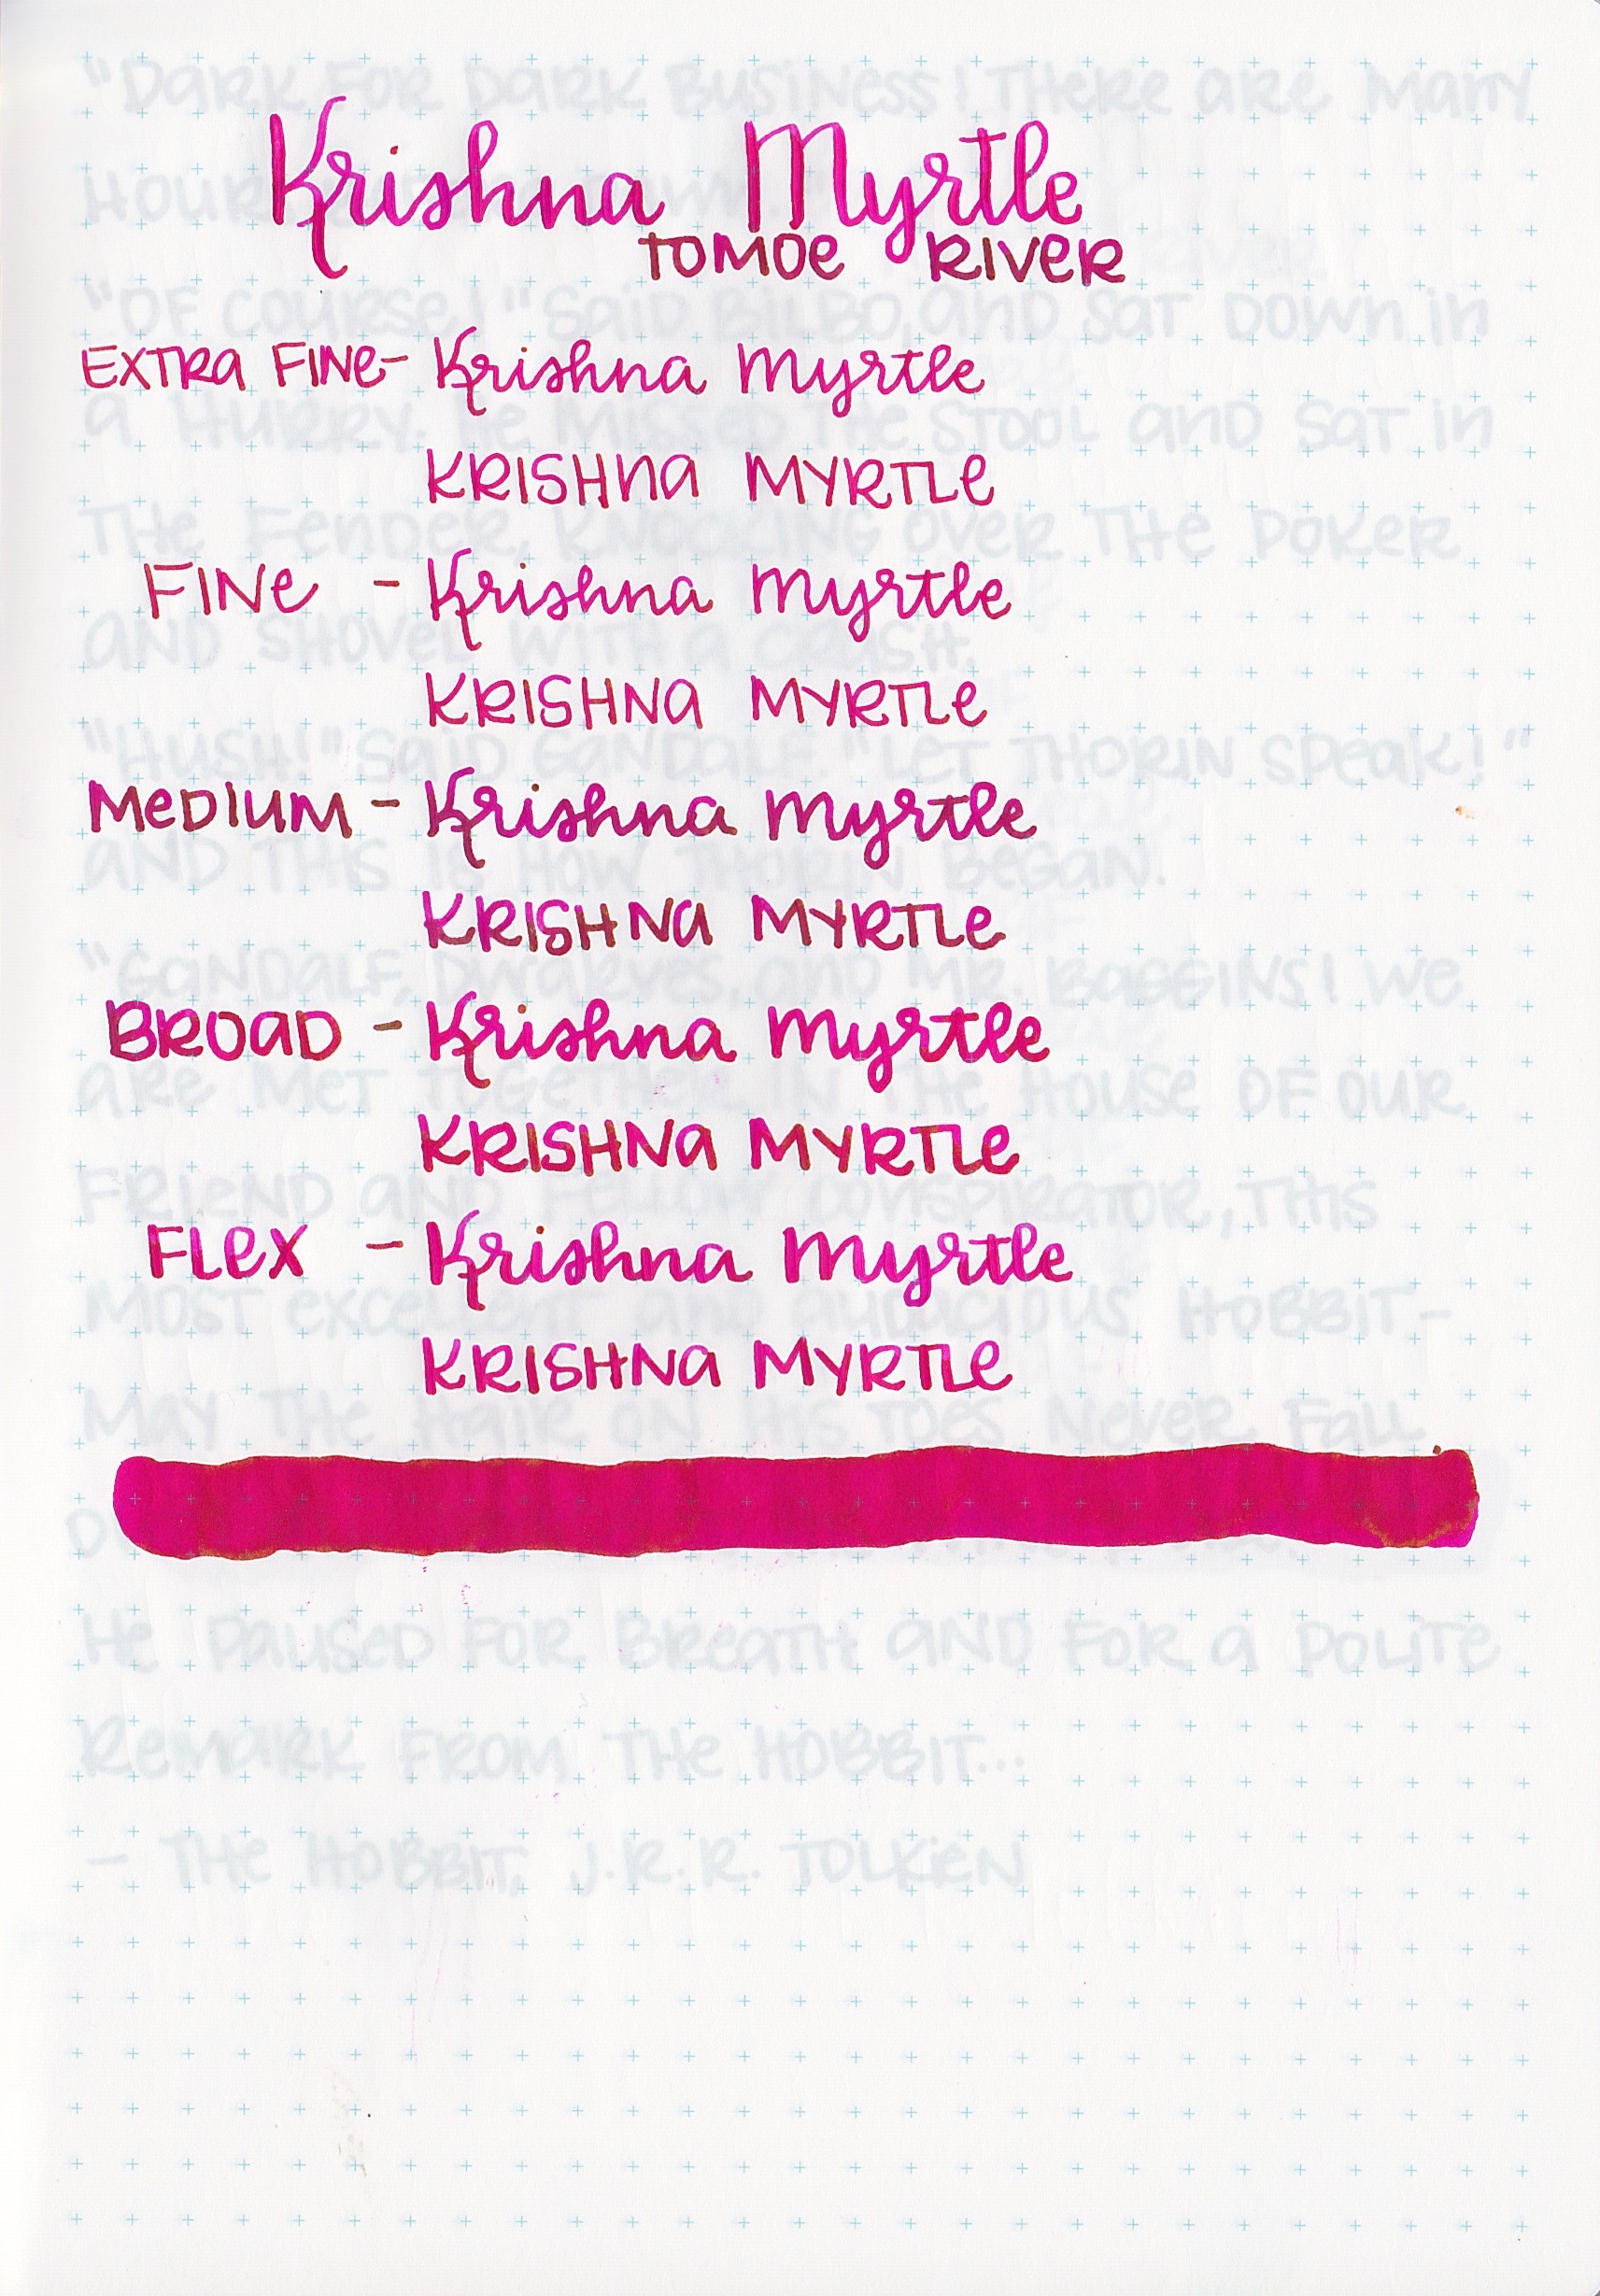 Krishna Myrtle
TOMOE RIVER
EXTRA FINE - Krishna Myrtle
KRISHNA MYRTLE
FINE - Krishna Myrtle
KRISHNA MYRTLE
MEDIUM - Krishna Myrtle
KRISHNA MYRTLE
BROAD - Krishna Myrtle
KRISHNA MYRTLE
FLEX - Krishna Myrtle
KRISHNA MYRTLE
"DARK FOR DARK BUSINESS! THERE ARE MANY
"OF COURSE!" SAID BILBO, AND SAT DOWN IN
A HURRY. HE MISSED THE STOOL AND SAT IN
THE FENDER, KNOCKING OVER THE POKER
AND SHOVEL WITH A CRASH.
"HUSH!" SAID GANDALF. "LET THORIN SPEAK!"
AND THIS IS HOW THORIN BEGAN.
"GANDALF, DWARVES, AND MR. BAGGINS! WE
ARE MET TOGETHER IN THE HOUSE OF OUR
FRIEND AND FELLOW CONSPIRATOR, THIS
MOST EXCELLENT AND AUDACIOUS HOBBIT-
MAY THE HAIR ON HIS TOES NEVER FALL
HE PAUSED FOR BREATH AND FOR A POLITE
REMARK FROM THE HOBBIT...
- THE HOBBIT, J.R.R. TOLKIEN